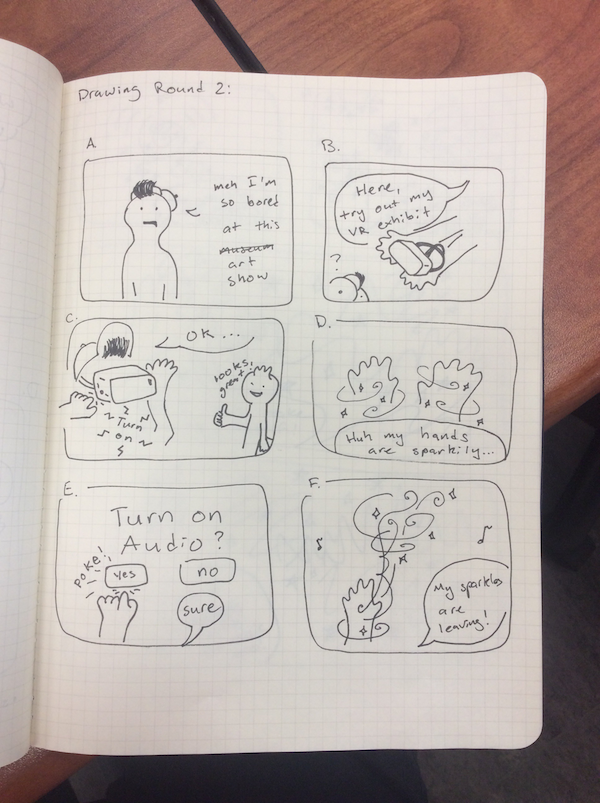 Drawing Round 2:
A.
meh I'm
so bored
at this
museum
art
show
B.
Here,
try out my
VR exhibit
?
C.
OK ...
looks
great!
Turn
on
D.
Huh my hands
are sparkily...
E.
Turn on
Audio?
poke!
yes
no
sure
F.
My sparkles
are
leaving!